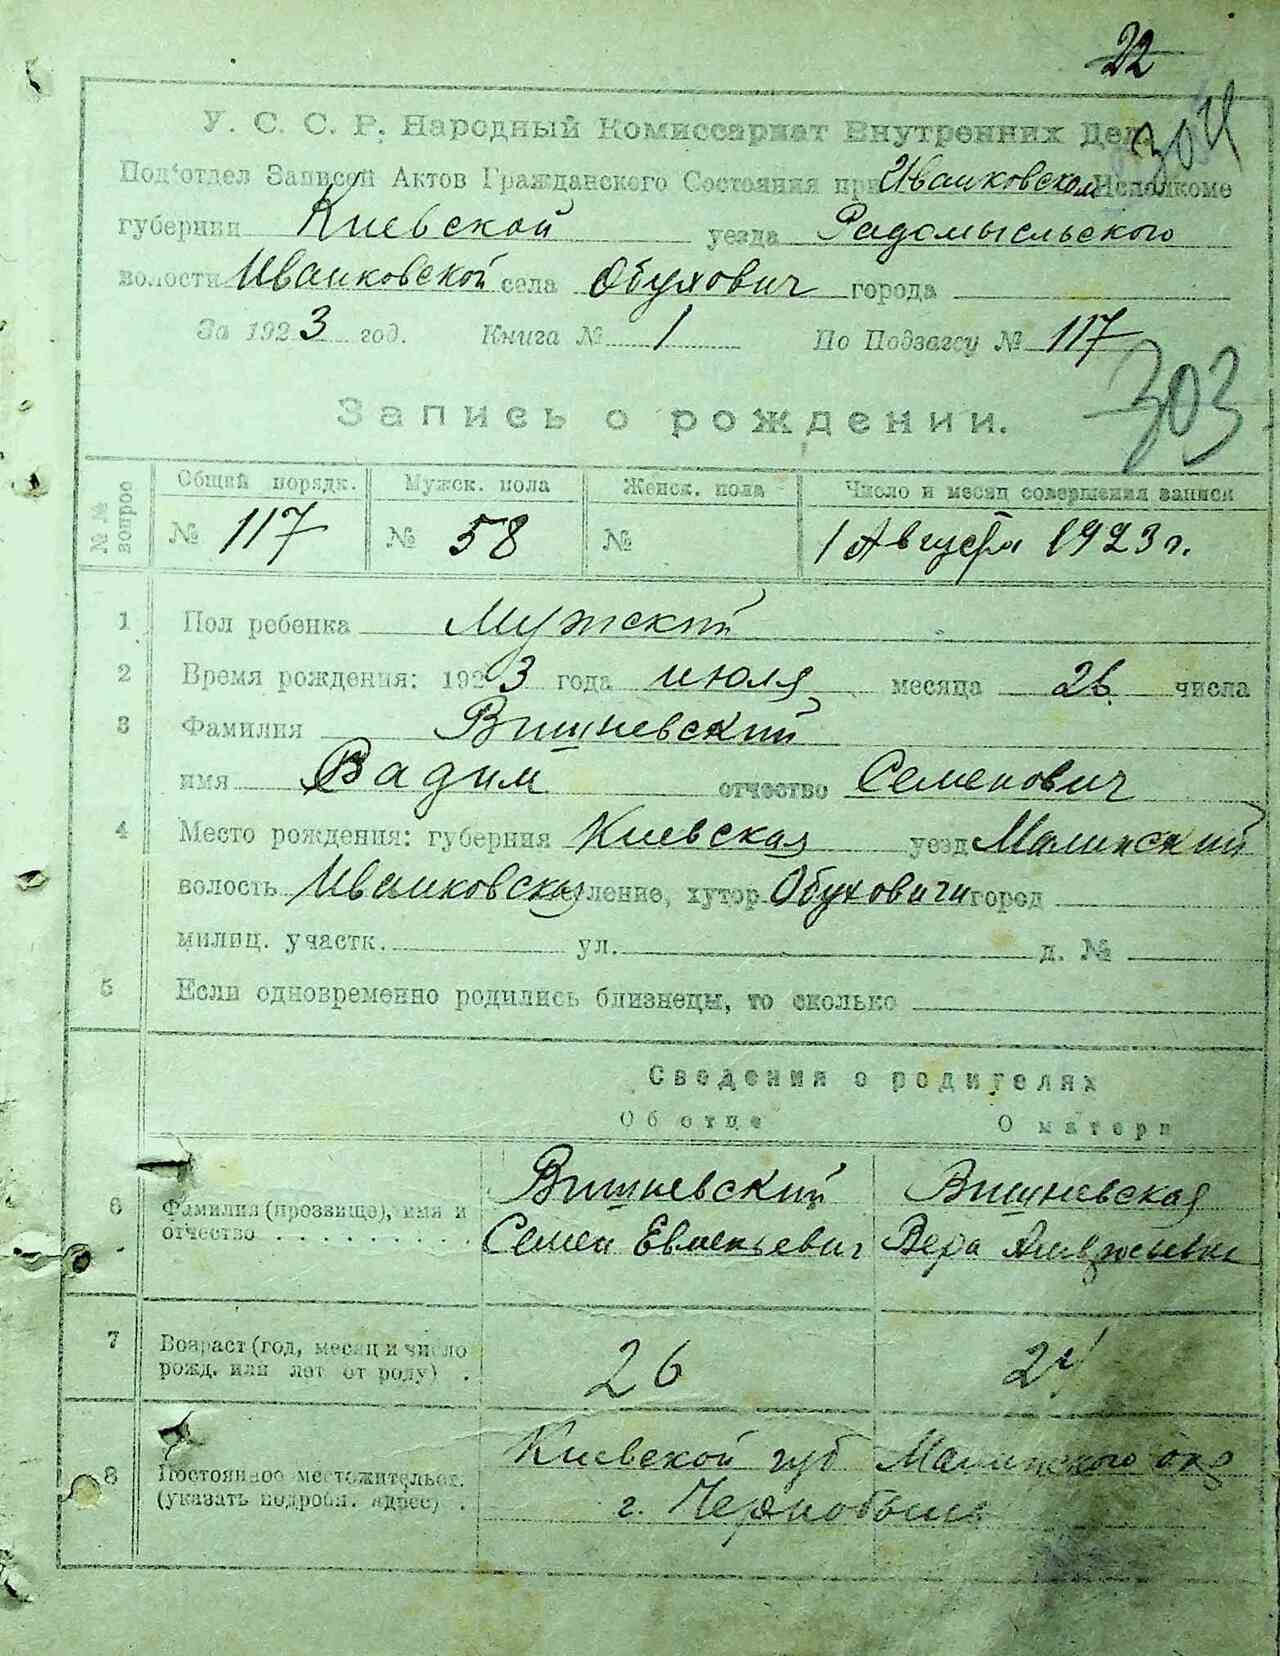 22
304
У. С. С. Р. Народный Комиссариат Внутренних Дел.
Под'отдел Записей Актов Гражданского Состояния при Иванковском Исполкоме
губернии Киевской уезда Радомысльского
волости Иванковской села Обухович города
За 1923 год. Книга № 1 По Подзагсу № 117
303
Запись о рождении.
№№ вопрос
Общий порядк. Мужск. пола Женск. пола Число и месяц совершения записи
№ 117 № 58 № 1 Августа 1923 г.
1 Пол ребенка Мужский
2 Время рождения: 1923 года июля месяца 26 числа
3 Фамилия Вишневский
имя Вадим отчество Семенович
4 Место рождения: губерния Киевская уезд Малинский
волость Иванковская ление, хутор Обуховичи город
милиц. участк. ул. д. №
5 Если одновременно родились близнецы, то сколько
Сведения о родителях
Об отце О матери
Вишневский Вишневская
6 Фамилия (прозвище), имя и
отчество Семен Евменьевич Вера
7 Возраст (год, месяц и число
рожд. или лет от роду) . 26
Киевской губ Малинского окр
8 Постоянное местожительст.
(указать подробн. адрес) . г. Чернобыль